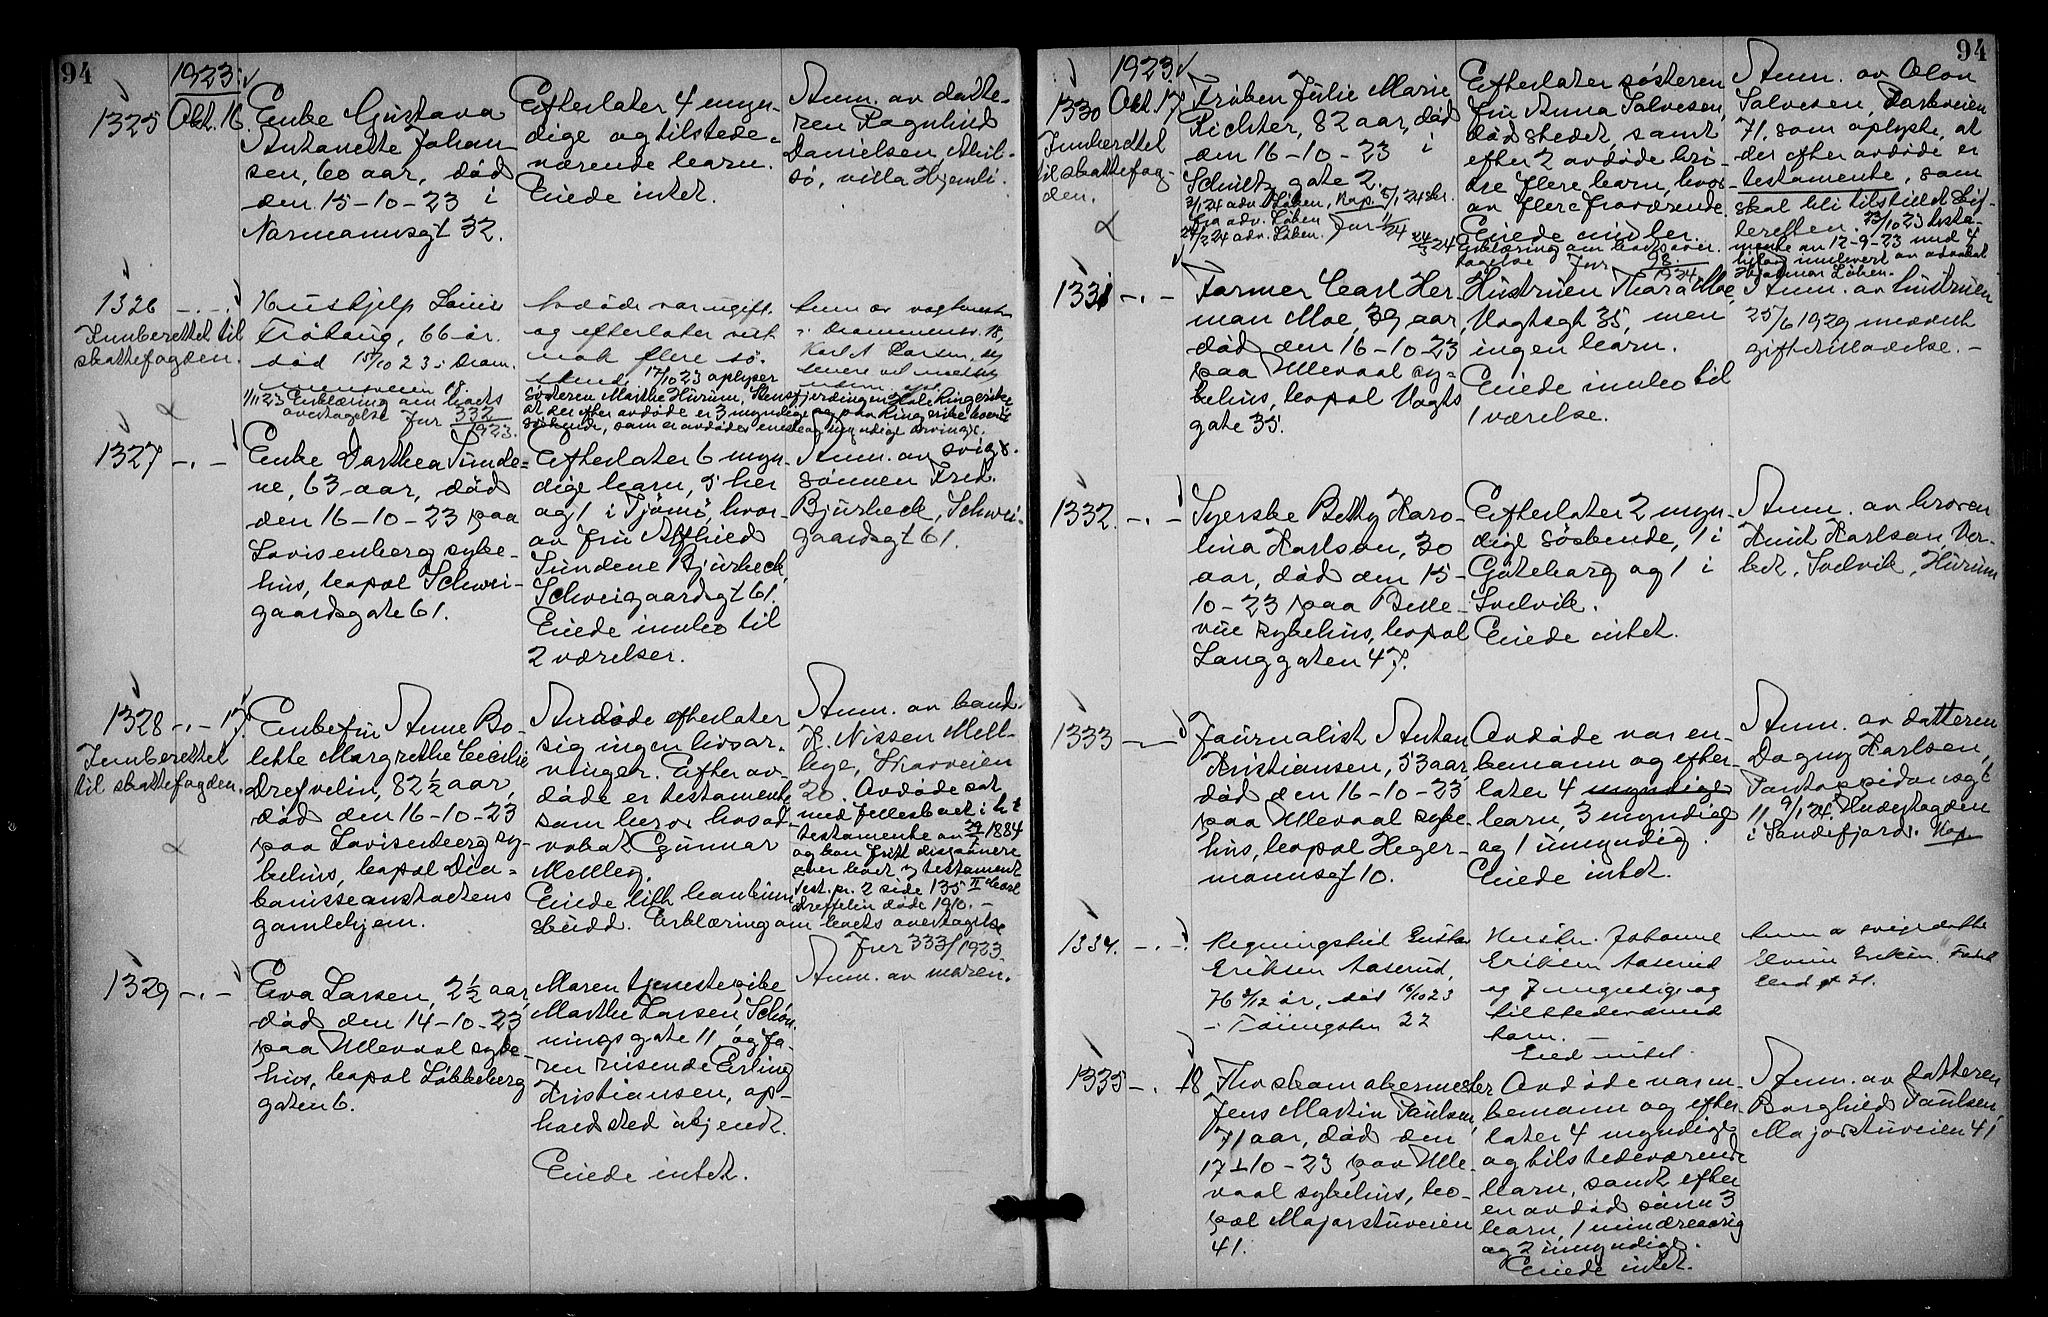 94
1923.
1325
Okt. 16.
Enke Gustava
Antonette Johan
sen, 60 aar, død
den 15-10-23 i
Normannsgt 32.
Efterlater 4 myn-
dige og tilstede-
værende barn.
Eiede intet.
Anm. av datte-
ren Ragnhild
Danielsen,
villa Hjemli.
1326 -.-
Innberettet til
skattefogden.
Hushjelp Louise
66 år.
død 15/10 23 i Dram.
mensveien 18.
1/11 23 Erklæring om boets
overtagelse Jnr 332
1923.
Avdøde var ugift
og efterlater sig
nok flere sø-
skende. 17/10 23 oplyser
søsteren Marthe Hurum,
at der efter avdøde er 3 myndige
søskende, som er avdødes eneste og myndige arvinger.
Anm. av vagtmester
Drammensv. 18,
Karl A. Larsen,
senere
1327 -.-
Enke Darthea Sunde-
ne, 63 aar, død
den 16-10-23 paa
Lovisenberg syke-
hus, bopæl Schwei-
gaardsgate 61.
Efterlater 6 myn-
dige barn, 5 her
og 1 i Tjømø, hvor-
av fru Alfhild
Sundene Bjurbeck,
Schweigaardsgt 61.
Eiede innbo til
2 værelser.
Anm. av sviger-
sønnen Fred.
Bjurbeck, Schwei-
gaardsgt 61.
1328 -.- 17.
Innberettet
til skattefogden.
Enkefru Anne Bo-
lette Margrethe Cecilie
Drefvelin, 82 ½ aar,
død den 16-10-23
paa Lovisenberg sy-
kehus, bopæl Dia-
konisseanstaltens
gamlehjem.
Avdøde efterlater
sig ingen livsar-
vinger. Efter av-
døde er testamente
som beror hos ad-
vokat Gunnar
Mellbye.
Eiede litt kontanter
skudd. Erklæring om boets overtagelse
Jnr 333/1923.
Anm. av
H. Nissen Mell-
bye, Skovveien
20. Avdøde sat
med fellesboet i h. t.
testamente av 1884
og kan fritt disponere
over boet v. testament
Test. pr. 2 side 135 II Carl
Drefvelin døde 1910. -
1329 -.-
Eva Larsen, 2 ½ aar,
død den 14-10-23
paa Ullevaal syke-
hus, bopæl Løkkeberg
gaten 6.
Moren tjenestepike
Marthe Larsen, Schøn-
ningsgate 11, og fa-
ren reisende Erling
Kristiansen, op-
holdsted ukjendt.
Eiede intet.
Anm. av moren.
94
1923.
1330
Okt. 17.
Innberettet
til skattefog-
den.
Frøken Julie Marie
Richter, 82 aar, død
den 16-10-23 i
Schultz gate 2.
3/1 24 adv. Løken, Kap. 5/1 24
fra adv. Løken
adv. Løken. Jnr
Efterlater søsteren
fru Anna Salvesen,
dødstedet, samt
efter 2 avdøde brø-
dre flere barn, hvor-
av flere fraværende.
Eiede midler.
Erklæring om boets over-
tagelse Jnr 98
1924
Anm. av Olav
Salvesen, Parkveien
71, som oplyste, at
der efter avdøde er
testamente, som
skal bli tilstillet Skif-
teretten. 23/10 23 testa-
mente av 12-9-23 med 4
bilag innlevert av advokat
Hjalmar Løken.
1331 -.-
Former Carl Her-
man Moe, 39 aar,
død den 16-10-23
paa Ullevaal sy-
kehus, bopæl Vogts
gate 35.
Hustruen Thora Moe,
Vogtsgt 35, men
ingen barn.
Eiede innbo til
1 værelse.
Anm. av hustruen
25/6 1929 meddelt
giftetilladelse. -
1332. -.-
Syerske Betty Karo-
lina Karlson, 30
aar, død den 15-
10-23 paa Belle-
vue sykehus, bopæl
Langgaten 47.
Efterlater 2 myn-
dige søskende, 1 i
Göteborg og 1 i
Svelvik.
Eiede intet.
Anm. av broren
Knut Karlson, Ver-
ket, Svelvik, Hurum
1333 -.-
Journalist Anton
Kristiansen, 53 aar,
død den 16-10-23
paa Ullevaal syke-
hus, bopæl Heger-
mannsgt 10.
Avdøde var en-
kemann og efter-
later 4 myndige
barn, 3 myndige
og 1 umyndig.
Eiede intet.
Anm. av datteren
Dagny Karlsen,
Pontoppidansgt
11. 9/1 24.
i Sandefjord. Kap.
1334. -.-
Eriksen Aaserud,
76 år, død 16/10 23
i Tøiengaten 22
Hustr. Johanne
Eriksen Aaserud
og 7 myndige og
tilstedeværende
barn. -
Eied intet.
Anm. av svigerdatter
Eriksen.
1335 -.- 18
Fhv. skomakermester
Jens Martin Paulsen,
71 aar, død den
17-10-23 paa Ulle-
vaal sykehus, bo-
pæl Majorstuveien
41.
Avdøde var en-
kemann og efter-
later 4 myndige
og tilstedeværende
barn, samt efter
en avdød sønn 3
barn, 1 mindreaarig
og 2 umyndige.
Eiede intet.
Anm. av datteren
Borghild Paulsen,
Majorstuveien 41